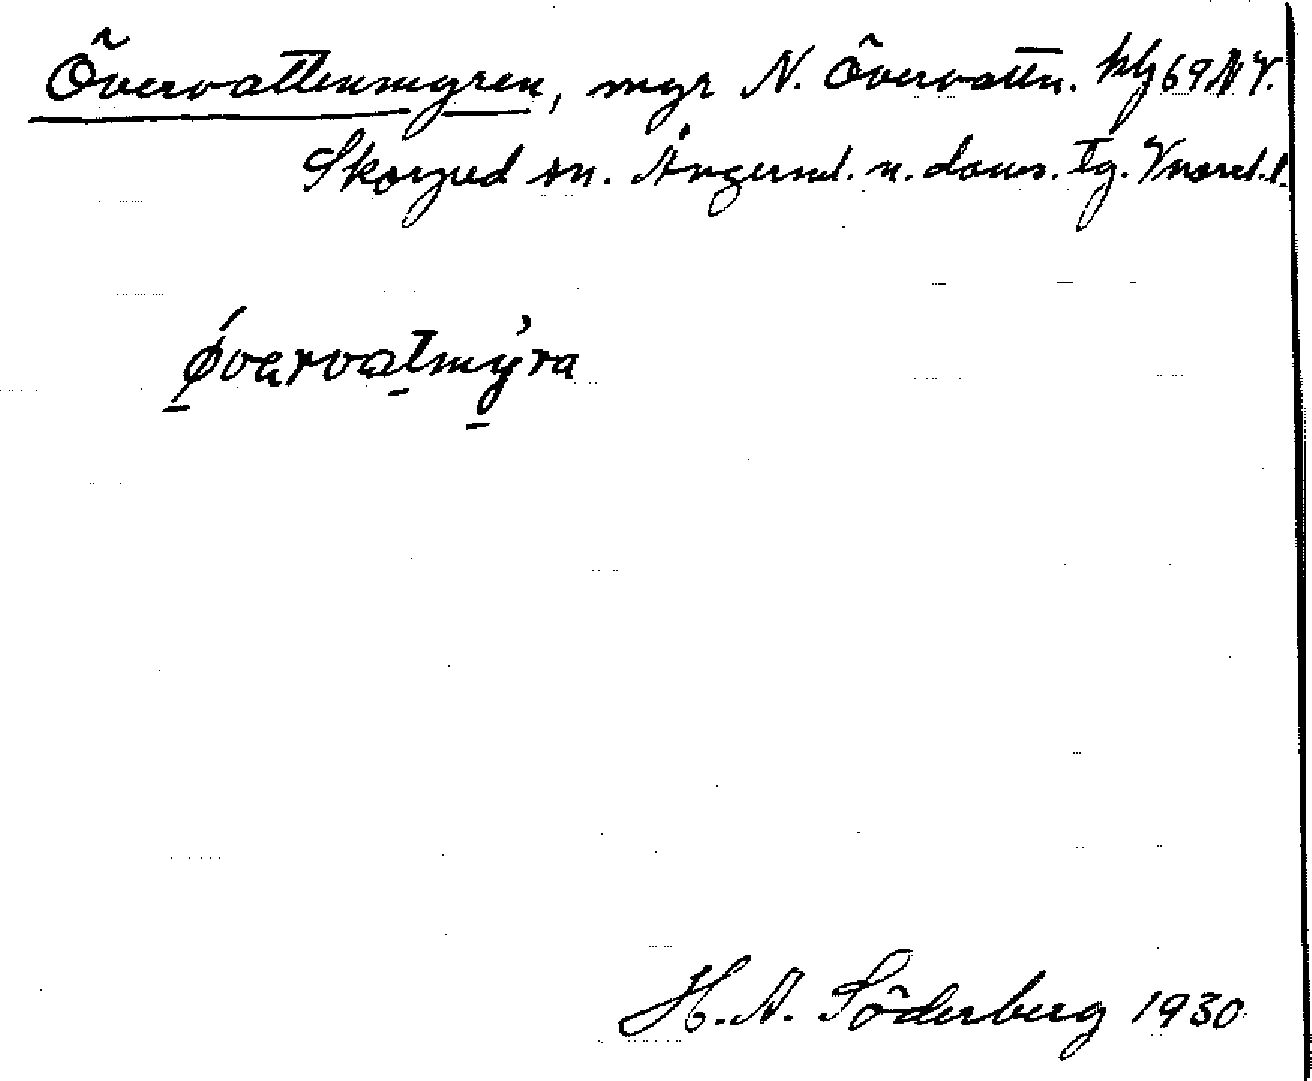 Övervattenmyren, myr N. Övervattn. kbl 69 N V.
Skorped sn. Ångerml. n. doms. tg. Vnorrl. l.
øvarvatmyra
H. A. Söderberg 1930